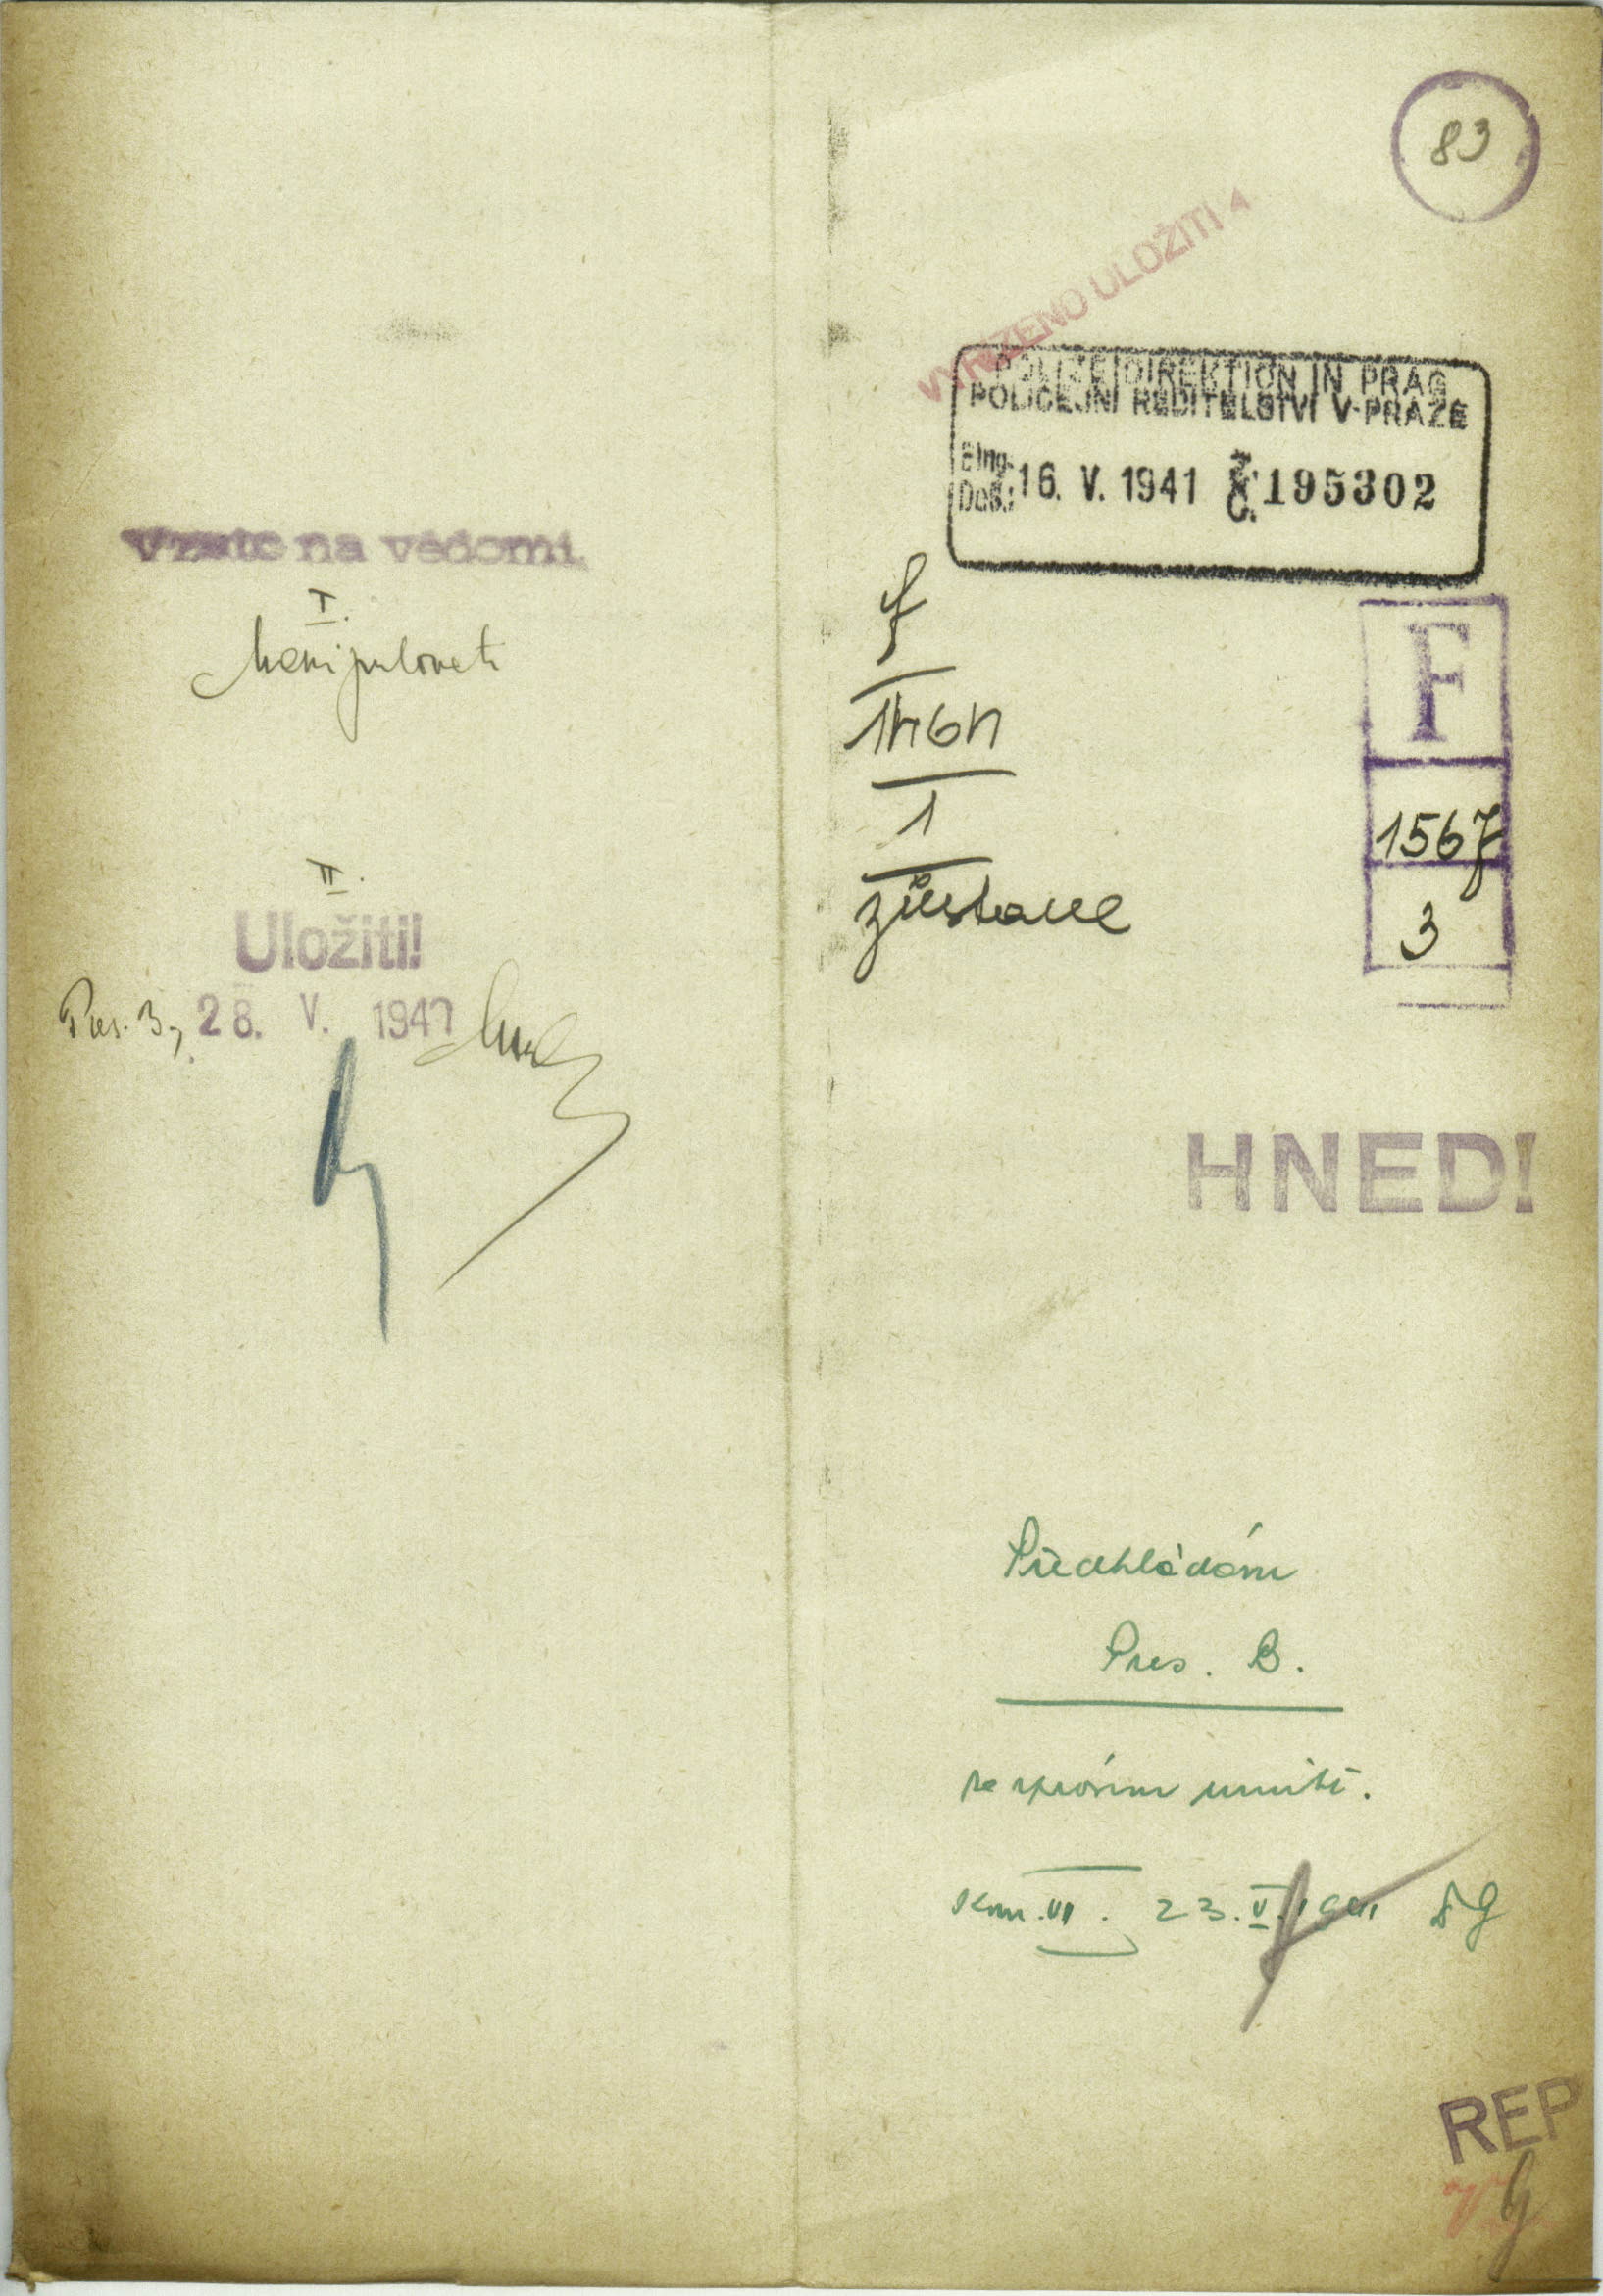 Vzato na vědomí.
I.
Manipulovati
II.
Uložiti!
Pres. B., 28. V. 1941
83
VYŘÍZENO ULOŽITI 4
POLIZEIDIREKTION IN PRAG
POLICEJNÍ ŘEDITELSTVÍ V PRAZE
Eing.
Došl.: 16. V. 1941 Č. 195302
F
1567
3
1
zůstane
HNED!
Předkládám
Pres. B.
se zprávou uvnitř.
Kom. VI. 23. V. 1941
REP